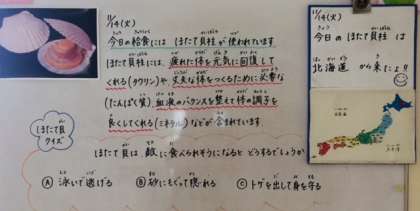 11/14(火)
今日の給食には ほたて貝柱が使われています
ほたて貝柱には、疲れた体を元気に回復して
くれる(タウリン)や 丈夫な体をつくるために必要な
(たんぱく質) 血液のバランスを整えて体の調子を
良くしてくれる(ミネラル)などが 含まれています
ほたて貝
クイズ
ほたて貝は 敵に食べられそうになると どうするでしょうか
Ⓐ 泳いで逃げる Ⓑ 砂にもぐって隠れる Ⓒ トゲを出して身を守る
11/14(火)
今日の ほたて貝柱 は
北海道 から来たよ!!